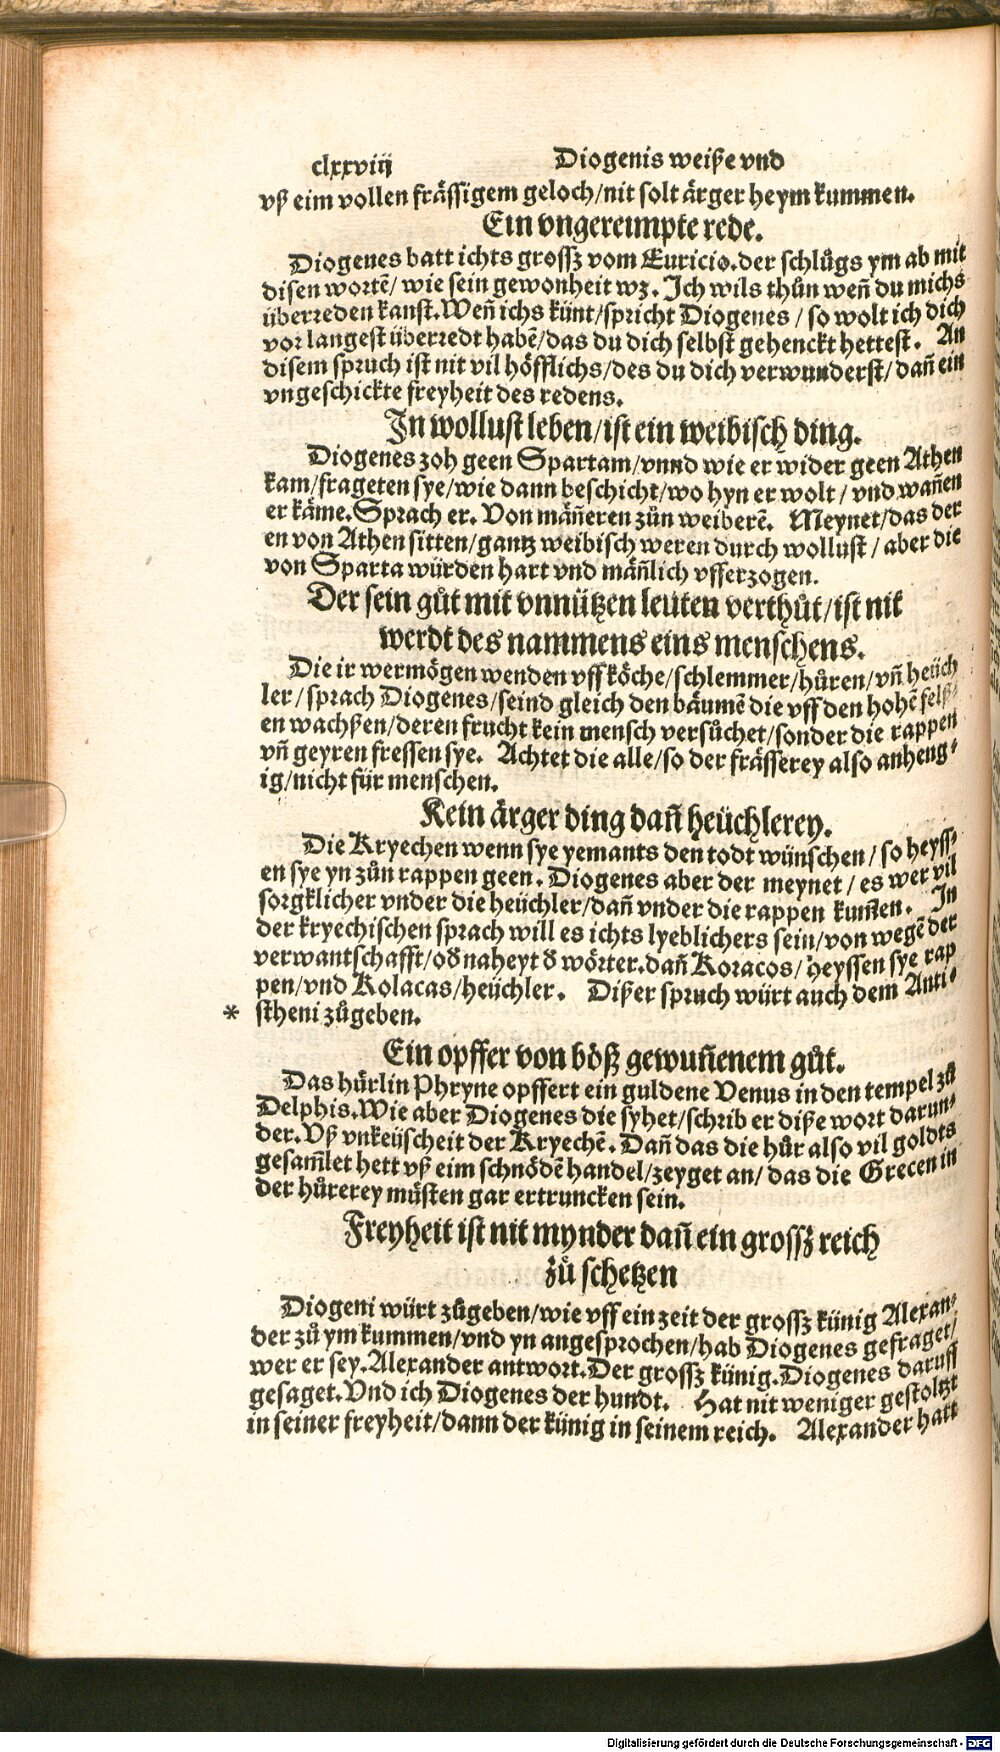 clxxviij Diogenis weiße vnd
vß eim vollen frässigem geloch/nit solt ärger heym kummen.
Ein vngereimpte rede.
Diogenes batt ichts grossz vom Euricio.der schlůgs ym ab mit
disen wortē/ wie sein gewonheit wz. Ich wils thůn weñ du michs
überreden kanst.Weñ ichs künt/spricht Diogenes / so wolt ich dich
vor langest überredt habē/das du dich selbst gehenckt hettest. An
disem spruch ist nit vil höfflichs/des du dich verwunderst/dañ ein
vngeschickte freyheit des redens.
In wollust leben/ist ein weibisch ding.
Diogenes zoh geen Spartam/vnnd wie er wider geen Athen
kam/frageten sye/wie dann beschicht/wo hyn er wolt / vnd wañen
er käme.Sprach er. Von mäñeren zůn weiberē. Meynet/das der
en von Athen sitten/gantz weibisch weren durch wollust / aber die
von Sparta würden hart vnd mäñlich vfferzogen.
Der sein gůt mit vnnützen leuten verthůt/ist nit
werdt des nammens eins menschens.
Die ir wermögen wenden vff köche/schlemmer/hůren/vñ heüch
ler/sprach Diogenes/seind gleich den bäumē die vff den hohē felß⸗
en wachßen/deren frucht kein mensch versůchet/sonder die rappen
vñ geyren fressen sye. Achtet die alle/so der frässerey also anheng⸗
ig/nicht für menschen.
Kein ärger ding dañ heüchlerey.
Die Kryechen wenn sye yemants den todt wünschen / so heyss⸗
en sye yn zůn rappen geen. Diogenes aber der meynet / es wer vil
sorgklicher vnder die heüchler/dañ vnder die rappen kum̄en. In
der kryechischen sprach will es ichts lyeblichers sein/von wegē der
verwantschafft/oď naheyt ď wörter.dañ Koracos/ heyssen sye rap
pen/vnd Kolacas/heüchler. Dißer spruch würt auch dem Anti⸗
* stheni zůgeben.
Ein opffer von böß gewuñenem gůt.
Das hürlin Phryne opffert ein guldene Venus in den tempel zů
Delphis.Wie aber Diogenes die syhet/schrib er diße wort darun⸗
der.Vß vnkeüscheit der Kryechē. Dañ das die hůr also vil goldts
gesam̄let hett vß eim schnödē handel/zeyget an/ das die Grecen in
der hůrerey müsten gar ertruncken sein.
Freyheit ist nit mynder dañ ein grossz reich
zů schetzen
Diogeni würt zůgeben/wie vff ein zeit der grossz künig Alexan⸗
der zů ym kummen/vnd yn angesprochen/hab Diogenes gefraget/
wer er sey.Alexander antwort.Der grossz künig.Diogenes daruff
gesaget.Vnd ich Diogenes der hundt. Hat nit weniger gestoltzt
in seiner freyheit/dann der künig in seinem reich. Alexander hatt
Digitalisierung gefördert durch die Deutsche Forschungsgemeinschaft - DFG